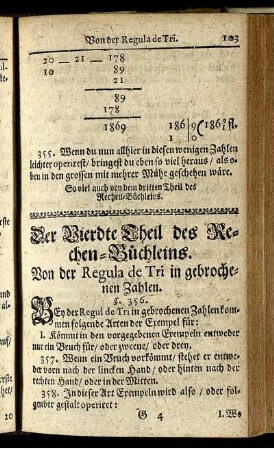 Von der Regula de Tri.
103
20 — 21 — 178
10 89
21
89
178
1869 186|9(186 9/10 fl.
1|0
355. Wenn du nun allhier in diesen wenigen Zahlen
leichter operirest/ bringest du eben so viel heraus/ als o-
ben in den grossen mit mehrer Mühe geschehen wäre.
So viel auch von dem dritten Theil des
Rechen-Büchleins.
Der Vierdte Theil des Re-
chen-Büchleins.
Von der Regula de Tri in gebroche-
nen Zahlen.
§. 356.
BEy der Regul de Tri in gebrochenen Zahlen kom-
men folgende Arten der Exempel für:
I. Kömmt in den vorgegebenen Exempeln entweder
nur ein Bruch für/ oder zweene/ oder drey.
357. Wenn ein Bruch vorkömmt/ stehet er entwe-
der vorn nach der lincken Hand/ oder hinten nach der
rechten Hand/ oder in der Mitten.
358. In dieser Art Exempeln wird also/ oder fol-
gender gestalt operiret:
G 4 I. We